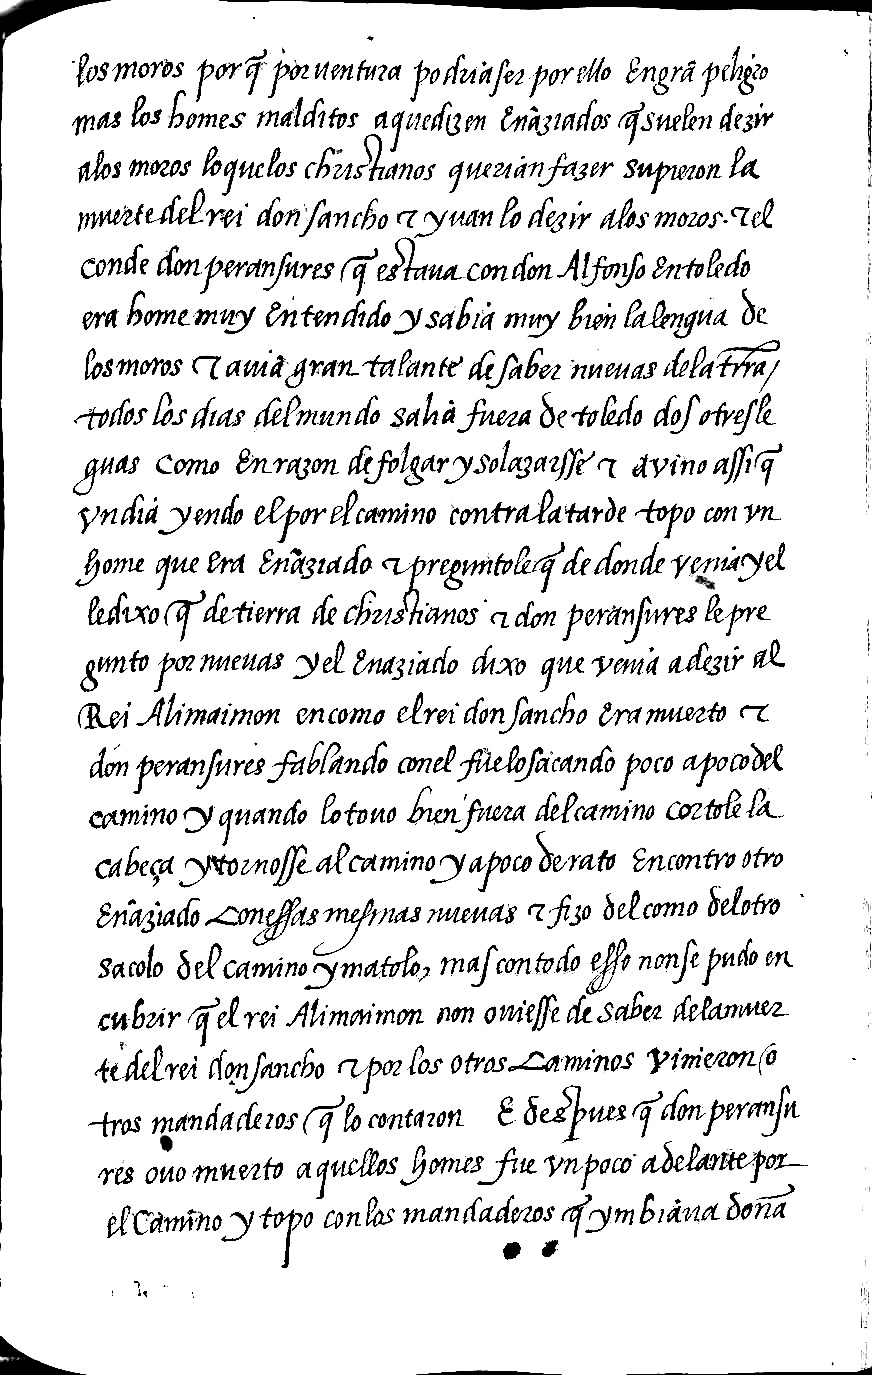 los moros porq̃ por uentura podria ser por ello Engrã peligro
mas los homes malditos aquedizen Enãziados q̃ suelen dezir
alos moros loquelos christianos querian fazer supieron la
muerte del rei don sancho ⁊ yuan lo dezir alos moros. ⁊ el
conde don peransures q̃ estaua con don Alfonso Entoledo
era home muy Entendido y sabia muy bien la lengua de
los moros ⁊ auia gran talante de saber nueuas dela trr̃a/
todos los dias del mundo salia fuera de toledo dos otres le
guas como En razon de folgar y solazarsse ⁊ avino assi q̃
vn dia yendo el por el camino contra la tarde topo con vn
home que Era Enãziado ⁊ preguntole q̃ de donde venia y el
le dixo q̃ de tierra de christianos ⁊ don peransures le pre
gunto por nueuas y el Enaziado dixo que venia a dezir al
Rei Alimaimon en como el rei don sancho Era muerto ⁊
don peransures fablando conel fuelo sacando poco a poco del
camino y quando lo touo bien fuera del camino cortole la
cabeça y tornosse al camino y apoco de rato Encontro otro
Enãziado Con essas mesmas nueuas ⁊ fizo del como del otro
sacolo del camino y matolo, mas contodo esso non se pudo en
cubrir q̃ el rei Alimaimon non ouiesse de saber dela muer
te del rei don sancho ⁊ por los otros Caminos vinieron o
tros mandaderos q̃ lo contaron E despues q̃ don peransu
res ouo muerto aquellos homes fue vn poco adelante por
el Camino y topo con los mandaderos q̃ ymbiaua doña